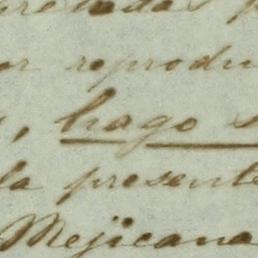 or reprodu
, hago s
la presente
Mejicana